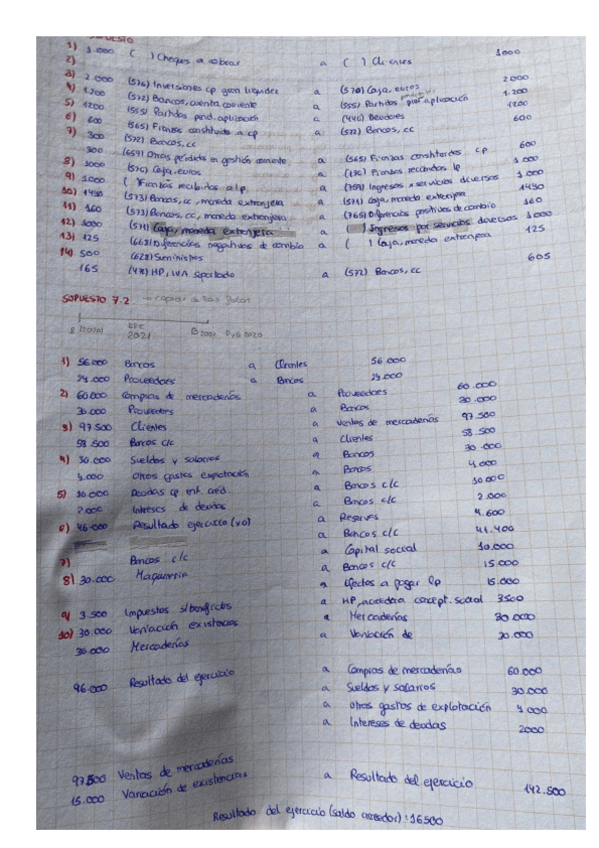 SUPUESTO
1) 1.000 ( ) Cheques a cobrar a ( ) Clientes 1000
2)
3) 2.000 (576) Inversiones cp gran liquidez a (570) Caja, euros 2000
4) 1.200 (572) Bancos, cuenta corriente a (555) Partidas pdtes aplicación 1.200
5) 1200 (555) Partidas pend. aplicación a (440) Deudores 1200
6) 600 (565) Fianzas constituidas a cp a (572) Bancos, cc 600
7) 300 (572) Bancos, cc
300 (659) Otras pérdidas en gestión corriente a (565) Fianzas constituidas cp 600
8) 1000 (570) Caja, euros a Fianzas recibidas lp 1.000
9) 1.000 ( Fianzas recibidas a lp. a (759) Ingresos x servicios diversos 1.000
10) 1450 (573) Bancos, cc, moneda extranjera a (571) Caja, moneda extranjera 1450
11) 160 (573) Bancos, cc, moneda extranjera a (768) Diferencias positivas de cambio 160
12) 1000 (571) Caja, moneda extranjera a ( ) Ingresos por servicios diversos 1000
13) 125 (668) Diferencias negativas de cambio a ( ) Caja, moneda extranjera 125
14) 500 (628) Suministros
165 (472) HP, IVA soportado a (572) Bancos, cc 605
SUPUESTO 7.2
2021
1) 56.000 Bancos a Clientes 56.000
24.000 Proveedores a Bancos 24.000
2) 60.000 Compras de mercaderías a Proveedores 60.000
30.000 Proveedores a Bancos 30.000
3) 97.500 Clientes a Ventas de mercaderías 97.500
58.500 Bancos c/c a Clientes 58.500
4) 30.000 Sueldos y salarios a Bancos 30.000
4.000 Otros gastos explotación a Bancos 4.000
5) 10.000 Deudas cp ent. créd. a Bancos c/c 10.000
2.000 Intereses de deudas a Bancos c/c 2.000
6) 46.000 Resultado ejercicio (x0) a Reservas 4.600
a Bancos c/c 41.400
7) Bancos c/c a Capital social 10.000
8) 30.000 Maquinaria a Bancos c/c 15.000
a Efectos a pagar lp 15.000
9) 3.500 Impuestos s/beneficios a HP, acreedora concept. social 3500
10) 30.000 Variación existencias a Mercaderías 30.000
30.000 Mercaderías a Variación de 30.000
96.000 Resultado del ejercicio a Compras de mercaderías 60.000
a Sueldos y salarios 30.000
a Otros gastos de explotación 4000
a Intereses de deudas 2000
97.500 Ventas de mercaderías
15.000 Variación de existencias a Resultado del ejercicio 142.500
Resultado del ejercicio (saldo acreedor): 16500